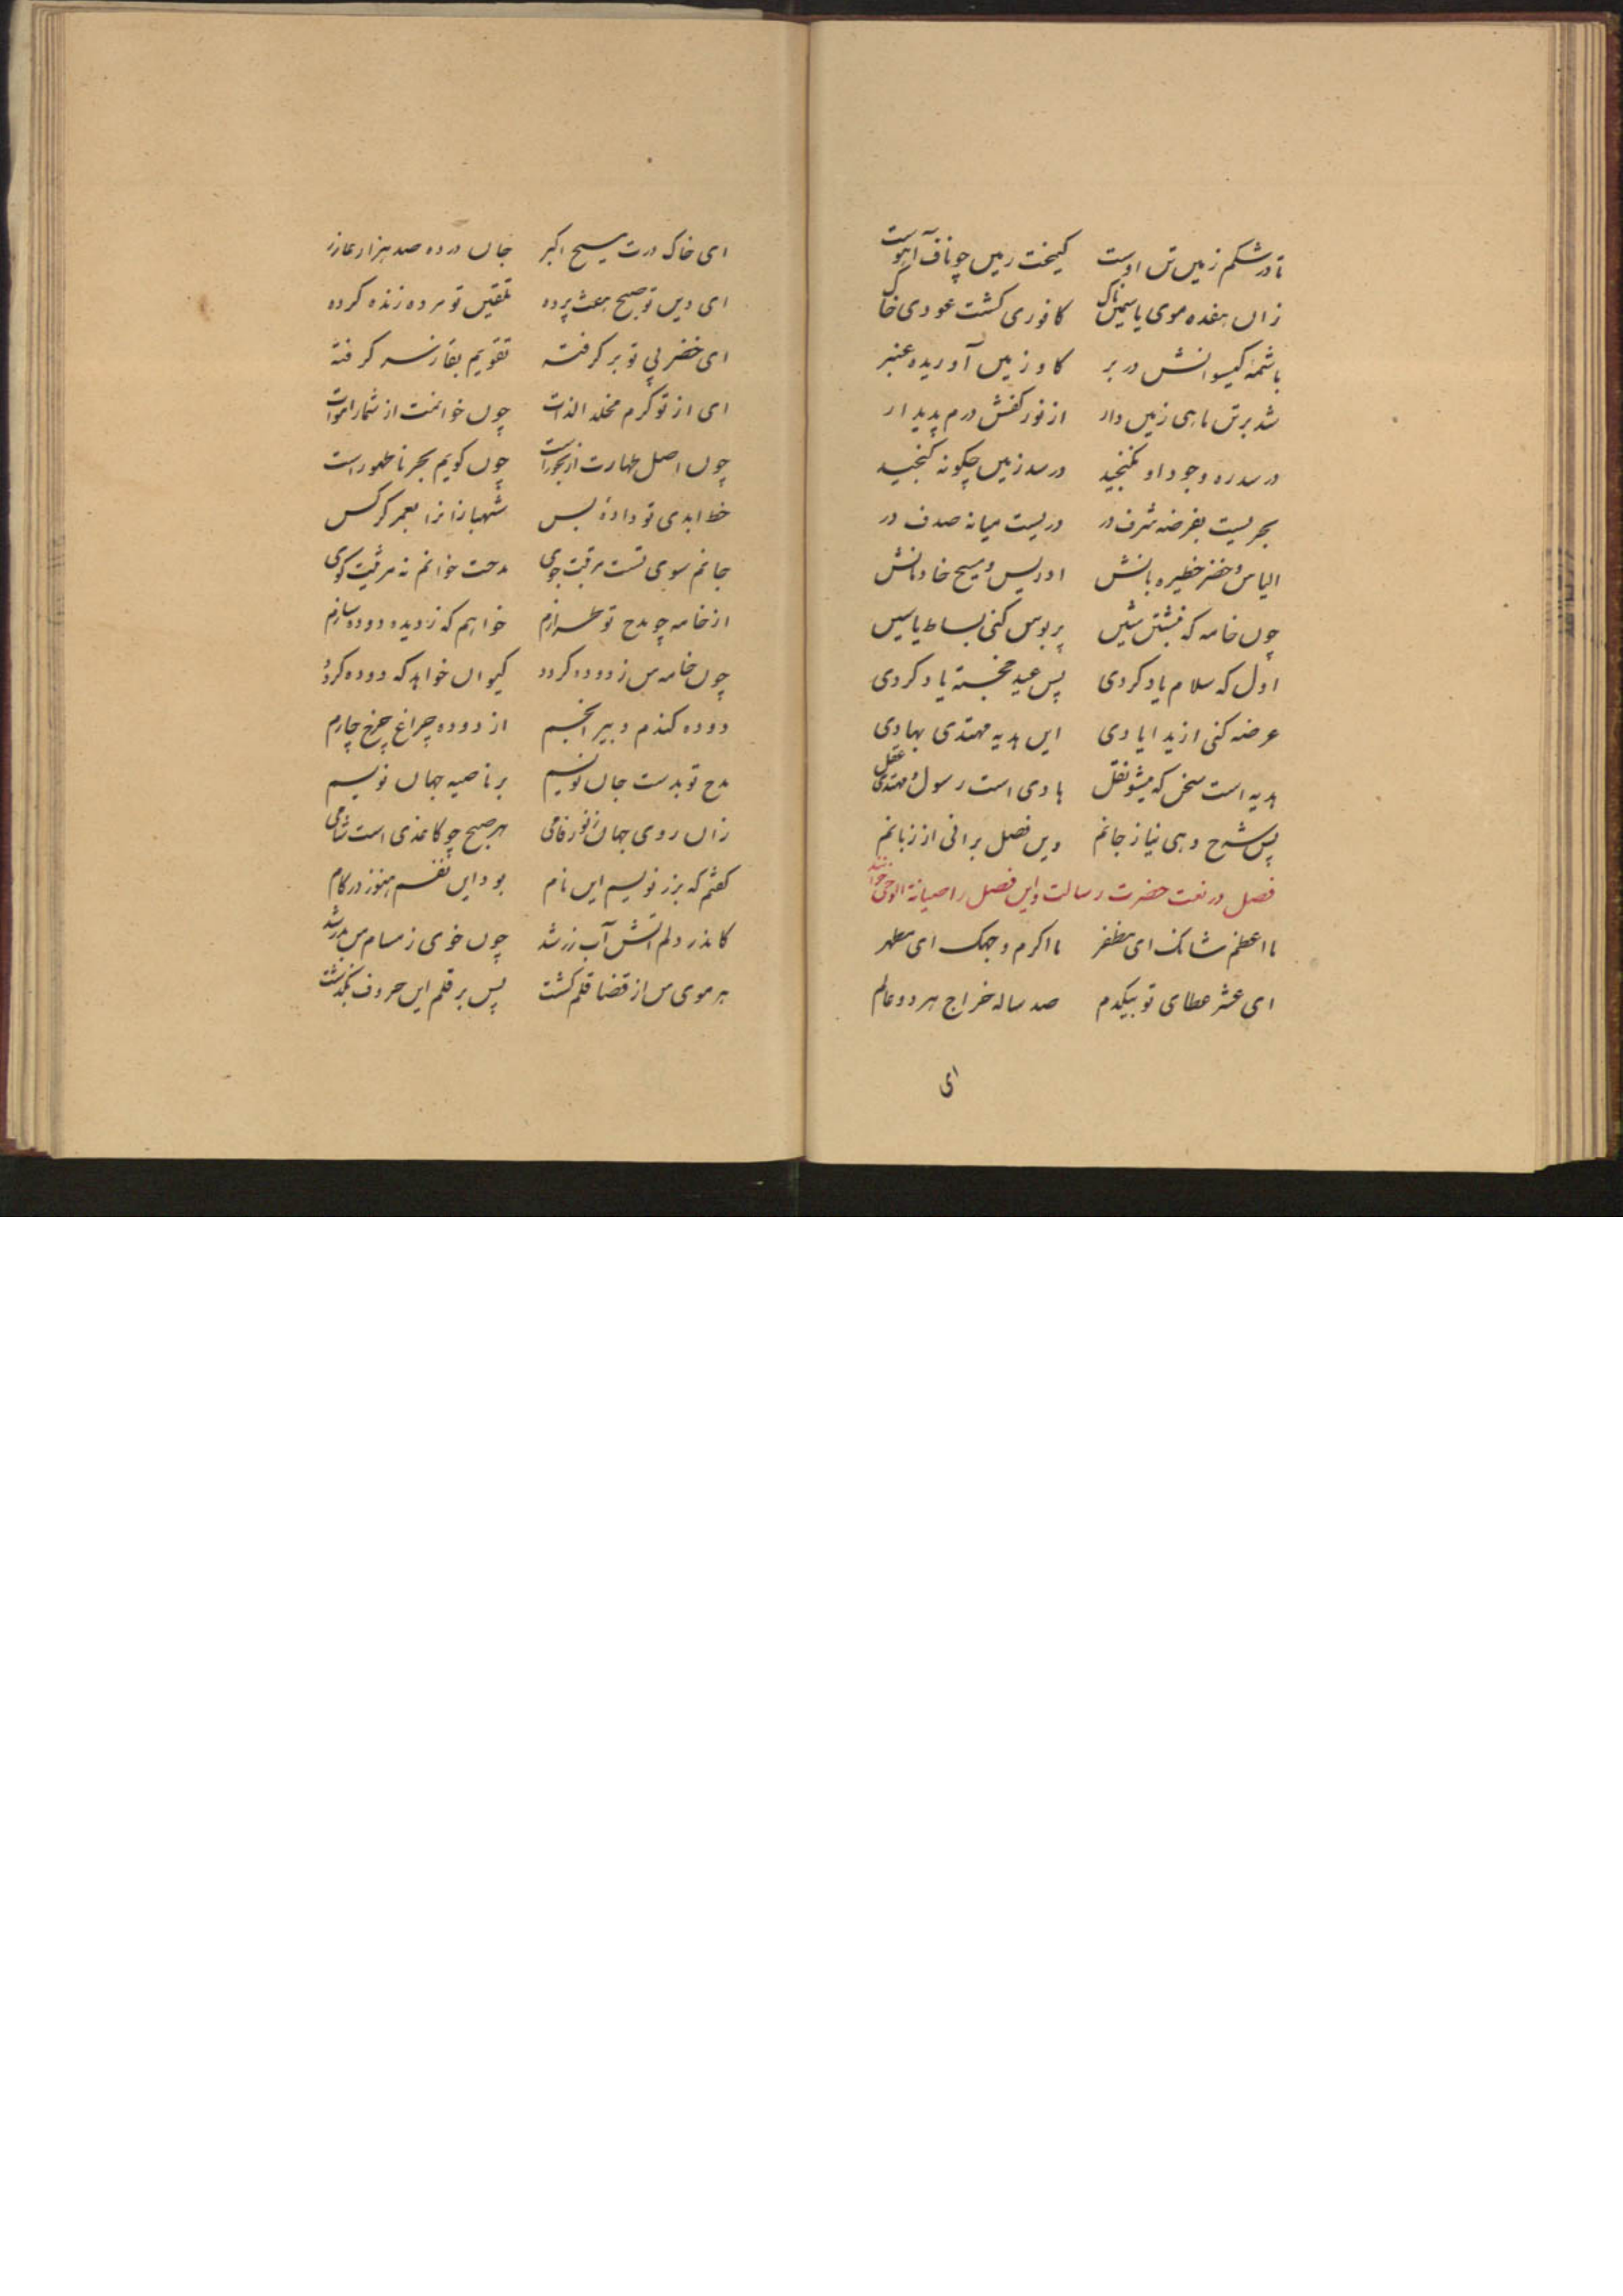 تا در شکم زمین تن اوست کیمخت زمین چو ناف آهوست
زان هفده موی یاسمین ناک کافوری گشت عودی خاک
با شمهٔ گیسوانش در بر گاو زمین آوریده عنبر
شد بر تن ماهی زمین دار از نور کفش درم پدیدار
در سدره وجود او نگنجید در سد زمین چگونه گنجید
بحریست بفرضه شرف در دریست میانه صدف در
الیاس و خضر خطیره بانش ادریس و مسیح خادمانش
چون خامه که نبشتن شین پر بوس کنی بساط یاسین
اول که سلام یاد کردی پس عید خجسته یاد کردی
عرضه کنی از ید ایادی این هدیه مهتدی بهادی
هدیه است سخن که میشو نقل هادی است رسول و مهتدی عقل
پس شرح دهی نیاز جانم وین فصل برانی از زبانم
فصل در نعت حضرت رسالت و این فصل را صیانة الوحی خوانند
ما اعظم شانک ای مظفر ما اکرم وجهک ای مطهر
ای عشر عطای تو بیکدم صد ساله خراج هر دو عالم
ای
ای خاک درت مسیح اکبر جان در ده صد هزار عازر
ای دین تو صبح بعث پرده تلقین تو مرده زنده کرده
ای خضر پی تو بر گرفته تقویم بقا ز سر گرفته
ای از تو کرم مخلد الذات چون خوانمت از شمار اموات
چون اصل طهارت از بحوراست چون گویم بحر ناطهور است
خط ابدی تو داده بس شهبازانرا بعمر کرکس
جانم سوی تست مرقبت جوی مدحت خوانم نه مرثیت گوی
از خامه چو مدح تو طرازم خواهم که ز دیده دوده سازم
چون خامه من ز دوده گردد کیوان خواهد که دوده گردد
دوده کندم دبیر انجم از دوده چراغ چرخ چارم
مدح تو بدست جان نویسم بر ناصیه جهان نویسم
زان روی جهان ز نور فامی هر صبح چو کاغذی است شامی
گفتم که بزر نویسم این نام بود این نفسم هنوز در کام
کاندر دلم آتش آب زر شد چون خوی ز مسام من بدر شد
هر موی من از قضا قلم گشت پس بر قلم این حروف بگذشت